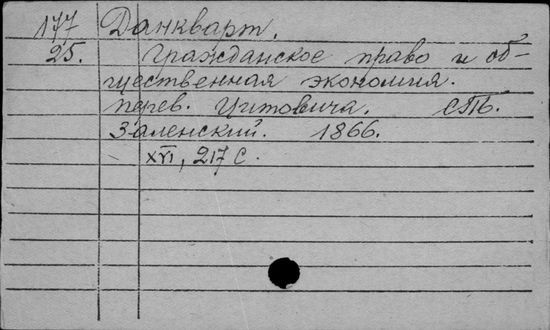 177 Данкварт.
25. Гражданское право и об-
щественная экономия.
перев. Цитовича. СПБ.
Заленский. 1866.
XVI, 217 с.